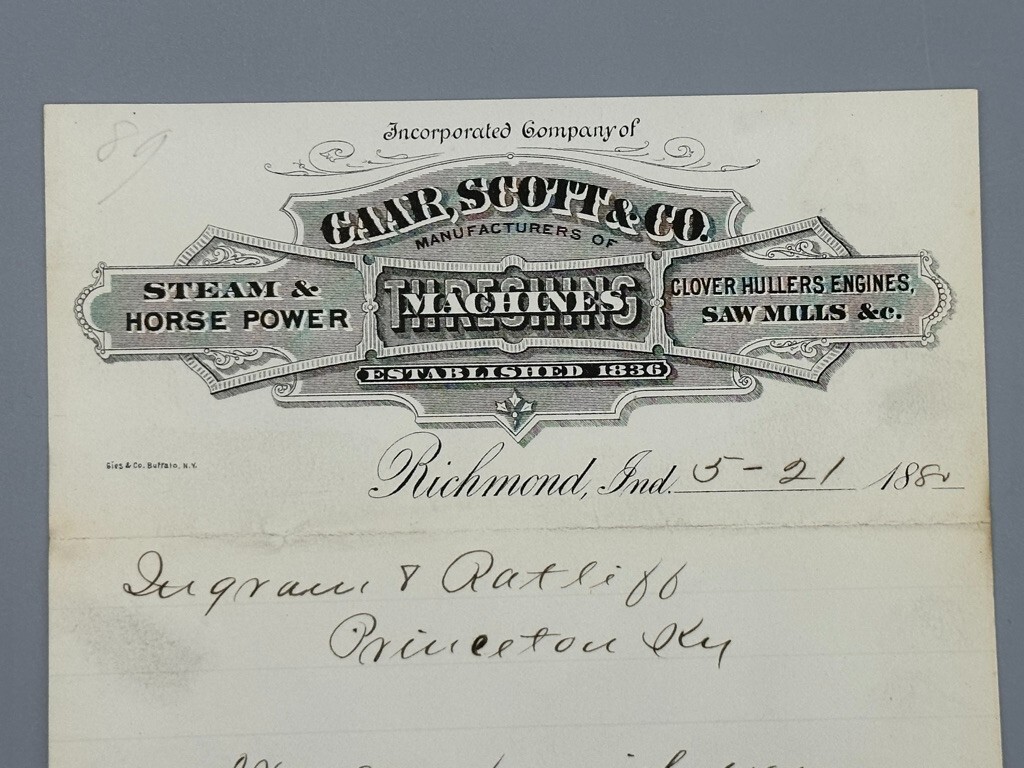 89
Incorporated Company of
GAAR, SCOTT & CO.
MANUFACTURERS OF
STEAM &
HORSE POWER
THRESHING
MACHINES
CLOVER HULLERS ENGINES,
SAW MILLS &c.
ESTABLISHED 1836
Gies & Co. Buffalo, N.Y.
Richmond, Ind. 5-21 1880
Ingram & Ratliff
Princeton Ky